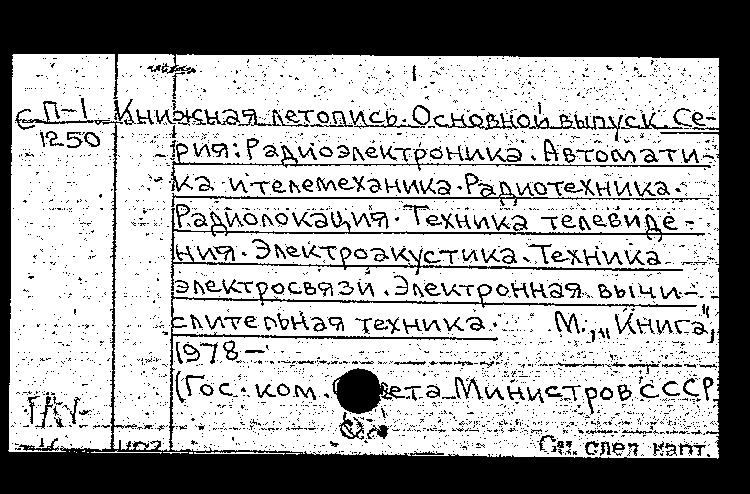 с П-1 Книжная летопись. Основной выпуск. Се-
1250
рия: Радиоэлектроника. Автомати-
ка и телемеханика. Радиотехника.
Радиолокация. Техника телевиде-
ния. Электроакустика. Техника
электросвязи. Электронная вычи-
слительная техника. М., "Книга",
1978 —
(Гос. ком. Совета Министров СССР
См. след. карт.